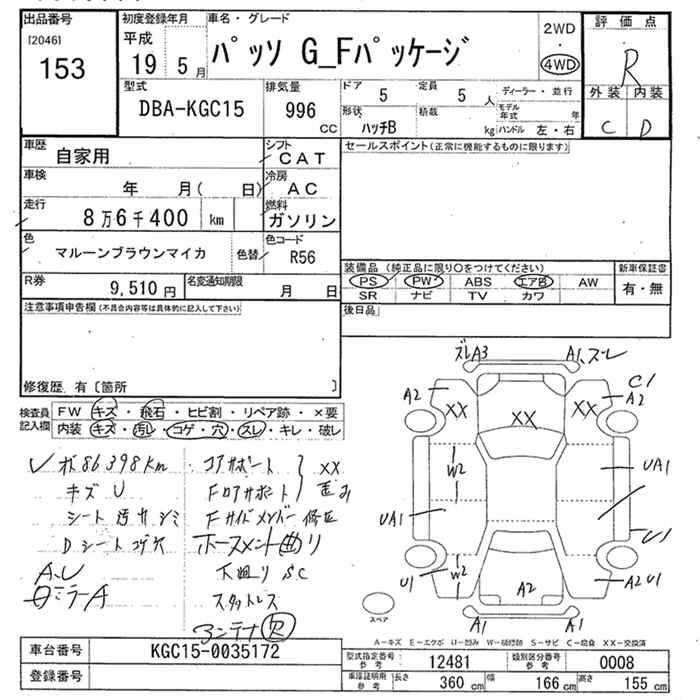 出品番号 初度登録年月 車名・グレード 2WD ・ 4WD 評価点
[2046] 153 平成 19年 5月 パッソ G_Fパッケージ R
型式 DBA-KGC15 排気量 996 CC ドア 5 定員 5 人 ディーラー・並行 外装 内装
形状 ハッチB 積載 kg モデル年式 年 ハンドル 左・右 C D
車歴 自家用 シフト CAT セールスポイント(正常に機能するものに限ります)
車検 年 月( 日) 冷房 AC
走行 8万6千400 km 燃料 ガソリン
色 マルーンブラウンマイカ 色替 色コード R56
R券 9,510円 名変通知期限 月 日
装備品(純正品に限り○をつけてください) 新車保証書
PS PW ABS エアB AW 有・無
SR ナビ TV カワ
注意事項申告欄(不具合内容等は具体的に記入して下さい) 後日品
修復歴、有〔箇所 〕
検査員記入欄 FW キズ・飛石・ヒビ割・リペア跡・×要
内装 キズ・汚れ・コゲ・穴・スレ・キレ・破レ
ズレA3 A1、ズレ
A2 XX XX XX A2 C1
W2 UA1
UA1 U1
U1 W2 A2 A2 U1
A1 A1
スペア
A-キズ E-エクボ U-凹み W-補修跡 S-サビ C-腐食 XX-交換済
メ 86398km コアサポート XX
キズ U Fロアサポート 歪み
シート 汚れ シミ Fサイドメンバー 修正
Dシートコゲ穴 ホースメント曲り
A、U 下廻り SC
ミラーA スタットレス
アンテナ 欠
車台番号 KGC15-0035172 型式指定番号 参考 12481 類別区分番号 参考 0008
登録番号 車庫証明用 参考 長さ 360 cm 幅 166 cm 高さ 155 cm